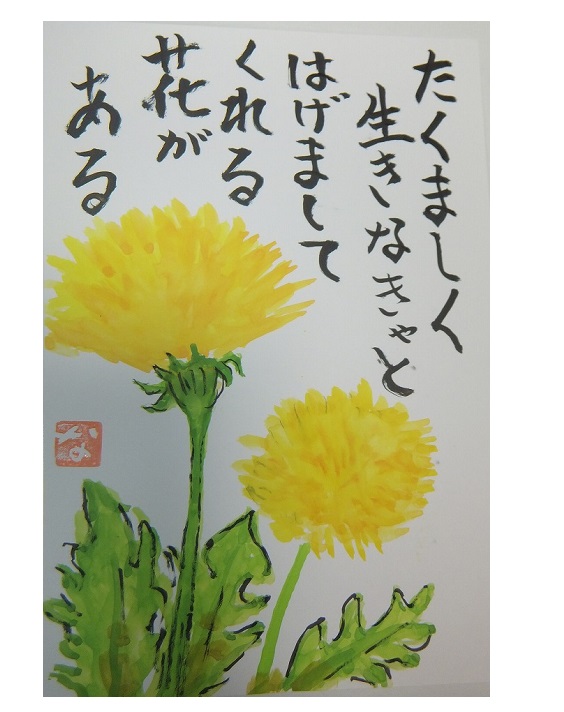 たくましく
生きなきゃと
はげまして
くれる
花が
ある
な